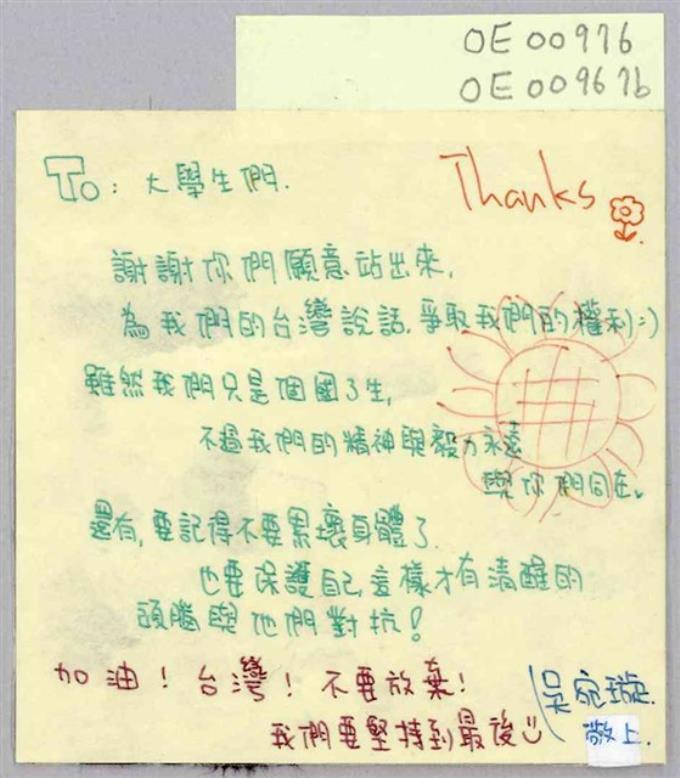 OE 00976
OE 00967b
To: 大學生們.
Thanks
謝謝你們願意站出來,
為我們的台灣說話,爭取我們的權利:)
雖然我們只是個國3生,
不過我們的精神與毅力永遠
與你們同在。
還有,要記得不要累壞身體了.
也要保護自己,這樣才有清醒的
頭腦與他們對抗!
加油!台灣!不要放棄!
我們要堅持到最後
吳宛璇.
敬上.